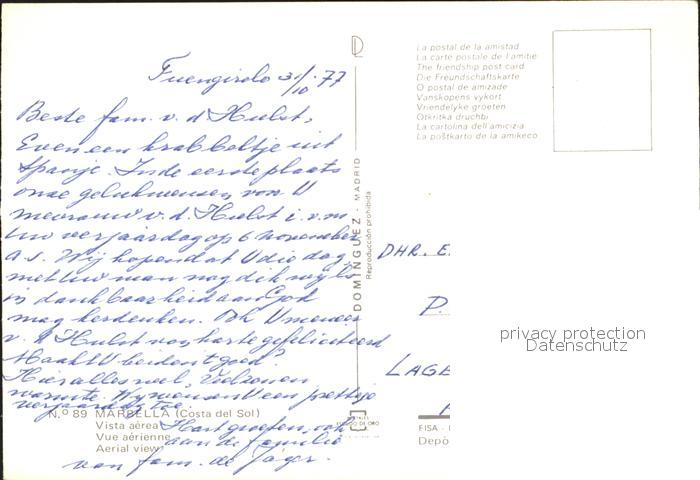 Fuengirola 31/10-77
Beste fam. v. d Hulst,
Even een krabbeltje uit
Spanje. In de eerste plaats
onze gelukwensen, voor U
mevrouw v. d. Hulst i. v. m
Uw verjaardag op 6 november
a.s. Wij hopen dat U die dag
met Uw man nog dik
in dankbaarheid aan God
mag herdenken. Ook U meneer
v. d Hulst van harte gefeliciteerd
Maakt U beiden 't goed?
Hier alles wel, veel zon en
warmte. Wij wensen U een prettige
verjaardag toe.
Hart. groeten, ook
aan de familie
van fam. de Jager.
N.º 89 MARBELLA (Costa del Sol)
Vista aérea
Vue aérienne
Aerial view
DOMINGUEZ - MADRID
Reproducción prohibida
La postal de la amistad
La carte postale de l'amitie
The friendship post card
Die Freundschaftskarte
O postal de amizade
Vanskopens vykort
Vriendelyke groeten
Otkritka druchbi
La cartolina dell'amicizia
La poŝtkarto de la amikeco
DHR. E.
P.
LAGE
privacy protection
Datenschutz
FISA - 
Depó